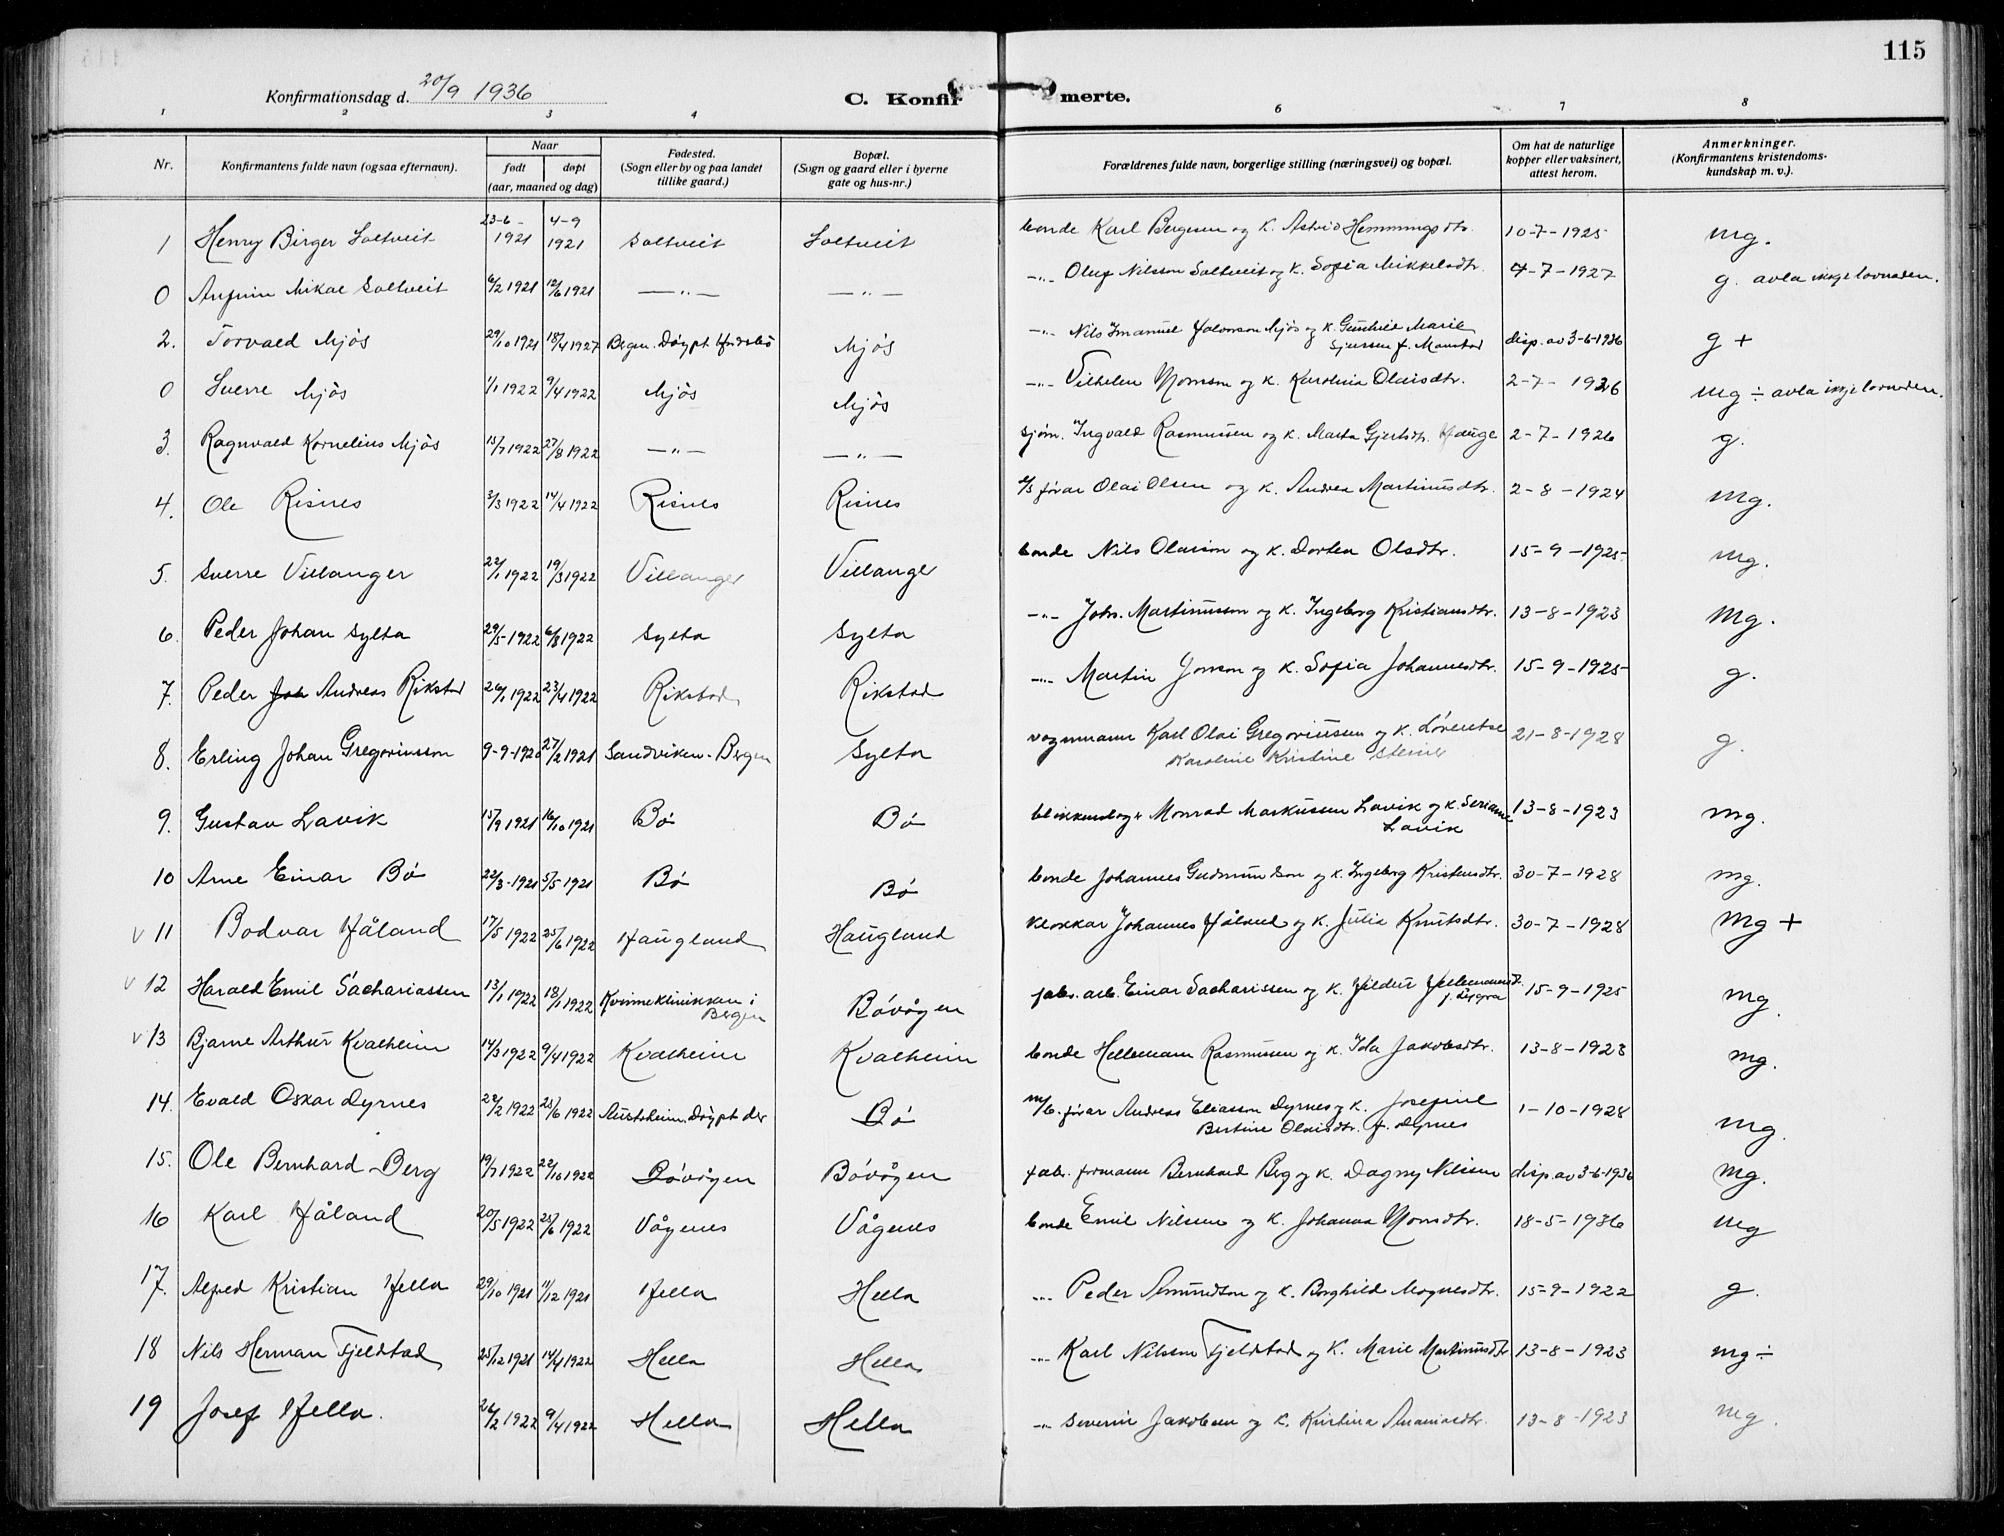 115
Konfirmationsdag d. 20/9 1936
C. Konfirmerte.
1 2 3 4 6 7 8
Nr. Konfirmantens fulde navn (ogsaa efternavn). Naar født døpt (aar, maaned og dag) Fødested. (Sogn eller by og paa landet tillike gaard.) Bopæl. (Sogn og gaard eller i byerne gate og hus-nr.) Forældrenes fulde navn, borgerlige stilling (næringsvei) og bopæl. Om hat de naturlige kopper eller vaksinert, attest herom. Anmerkninger. (Konfirmantens kristendoms-kundskap m. v.).
1 Henry Birger Soltveit 23-6-1921 4-9 1921 Soltveit Soltveit bonde Karl Bergesen og k. Astrid Hemmingsdtr. 10-7-1925 mg.
0 Anfinn Mikal Soltveit 6/2 1921 12/6 1921 —"— —"— -"- Oluf Nilsson Soltveit og k. Sofia Mikkelsdtr. 4-7-1927 g. avla ikkje lovnaden.
2. Torvald Mjøs 29/10 1921 18/4 1927 Bergen. Døypt Mjøs -"- Nils Imanuel Halvorson Mjøs og k. Gunhild Marie Sjursen f. disp. av 3-6-1936 g +
0 Sverre Mjøs 1/1 1922 9/4 1922 Mjøs Mjøs -"- Vilhelm Monson og k. Karolina Olaisdtr. 2-7-1926 mg ÷ avla ikkje lovnaden.
3. Ragnvald Kornelius Mjøs 15/7 1922 27/8 1922 —"— —"— sjøm. Ingvald Rasmussen og k. Marta Gjertsdtr. Hauge 2-7-1926 g.
4. Ole Risnes 3/3 1922 14/4 1922 Risnes Risnes førar Olai Olsen og k. Andrea Martinusdtr. 2-8-1924 mg.
5. Sverre Villanger 22/1 1922 19/3 1922 Villanger Villanger bonde Nils Olaison og k. Dortea Olsdtr. 15-9-1925 mg.
6. Peder Johan Sylta 29/5-1922 6/8 1922 Sylta Sylta -"- Johs. Martinusson og k. Ingeborg Kristiansdtr. 13-8-1923 mg.
7. Peder Joh Andreas Rikstad 26/1 1922 23/4 1922 Rikstad Rikstad -"- Martin Jonson og k. Sofia Johannesdtr. 15-9-1925 g.
8. Erling Johan Gregoriussen 9-9-1920 27/2 1921 Sandviken-Bergen Sylta vognmann Karl Olai Gregoriussen og k. Lorentse Karoline Kristine Steine 21-8-1928 g.
9. Gustav Lavik 15/9 1921 16/10 1921 Bø Bø blikkenslagar Monrad Markussen Lavik og k. Serianne Lavik 13-8-1923 mg.
10 Arne Einar Bø 22/3-1921 5/5 1921 Bø Bø bonde Johannes Gudmundson og k. Ingeborg Kristensdtr. 30-7-1928 mg.
v 11 Bodvar Håland 17/5 1922 25/6 1922 Haugland Haugland klokkar Johannes Håland og k. Julia Knutsdtr. 30-7-1928 mg +
v 12 Harald Emil Sachariassen 13/1 1922 18/1 1922 Kvinneklinikken i Bergen Bøvågen fabr. arb. Einar Sacharissen og k. Hildur 15-9-1925 mg
v 13 Bjarne Arthur Kvalheim 14/3 1922 9/4 1922 Kvalheim Kvalheim bonde Hellemann Rasmussen og k. Ida Jakobsdtr. 13-8-1923 mg.
14. Evald Oskar Dyrnes 22/2 1922 25/6 1922 Austrheim. Døypt der Bø m/b. førar Andreas Eliasson Dyrnes og k. Josefine Bertine Olaisdtr. f. Dyrnes 1-10-1928 mg.
15. Ole Bernhard Berg 19/7 1922 22/10 1922 Bøvågen Bøvågen fabr. formann Bernhard Berg og k. Dagny Nilsen disp. av 3-6-1936 mg.
16 Karl Håland 20/5 1922 25/6 1922 Vågenes Vågenes bonde Emil Nilsen og k. Johanna Monsdtr. 18-5-1936 mg
17. Alfred Kristian Hella 29/10 1921 11/12 1921 Hella Hella -"- Peder Amundson og k. Borghild Mognesdtr. 15-9-1922 g.
18 Nils Herman Fjeldstad 25/12 1921 14/4 1922 Hella Hella -"- Karl Nilsson Fjeldstad og k. Marie Martinusdtr 13-8-1923 mg ÷
19 Josef Hella. 26/2 1922 9/4 1922 Hella Hella -"- Severin Jakobsen og k. Kristina Ananiasdtr. 13-8-1923 mg.